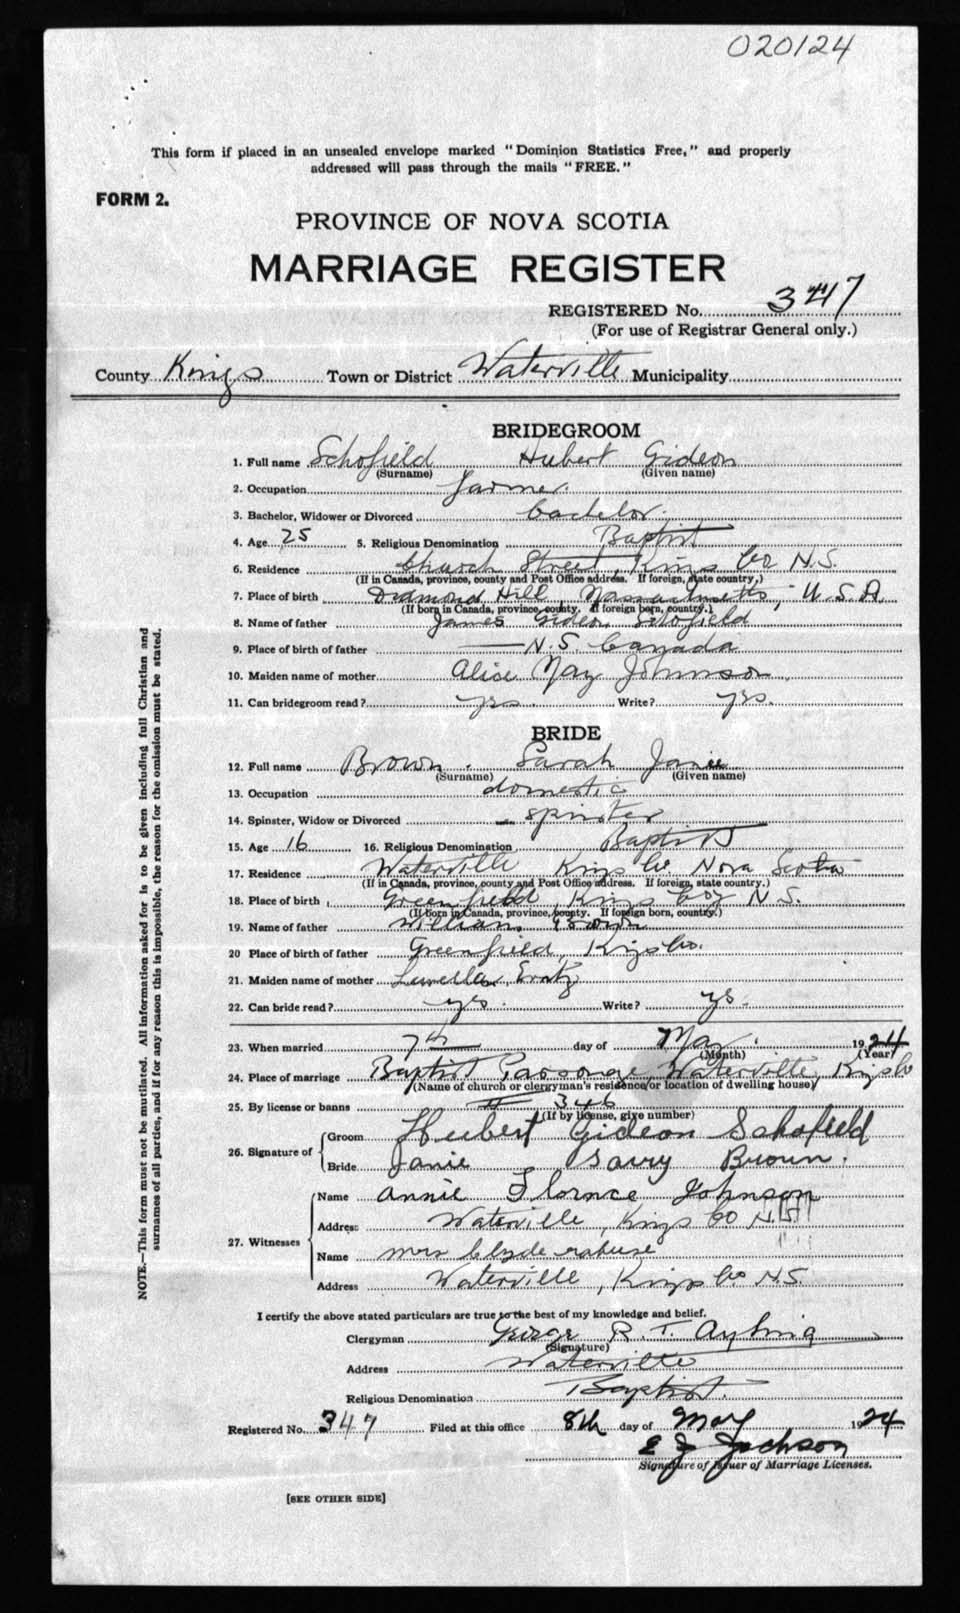 020124
This form if placed in an unsealed envelope marked "Dominion Statistics Free," and properly
addressed will pass through the mails "FREE."
FORM 2.
PROVINCE OF NOVA SCOTIA
MARRIAGE REGISTER
REGISTERED No. 347
(For use of Registrar General only.)
County Kings Town or District Waterville Municipality
BRIDEGROOM
1. Full name Schofield Hubert Gideon
(Surname) (Given name)
2. Occupation farmer.
3. Bachelor, Widower or Divorced bachelor.
4. Age 25 5. Religious Denomination Baptist
6. Residence Church Street, Kings Co N.S.
(If in Canada, province, county and Post Office address. If foreign, state country.)
7. Place of birth Diamond Hill, Massachusetts, U.S.A.
(If born in Canada, province, county. If foreign born, country.)
8. Name of father James Gideon Schofield
9. Place of birth of father N.S. Canada
10. Maiden name of mother Alice May Johnson
11. Can bridegroom read? yes. Write? yes.
BRIDE
12. Full name Brown. Sarah Janie
(Surname) (Given name)
13. Occupation domestic
14. Spinster, Widow or Divorced spinster
15. Age 16 16. Religious Denomination Baptist
17. Residence Waterville Kings Co Nova Scotia
(If in Canada, province, county and Post Office address. If foreign, state country.)
18. Place of birth Greenfield, Kings Co, N.S.
(If born in Canada, province, county. If foreign born, country.)
19. Name of father William Brown
20 Place of birth of father Greenfield, Kings Co.
21. Maiden name of mother Luella
22. Can bride read? yes. Write? yes.
23. When married 7th day of May. 1924
(Month) (Year)
24. Place of marriage Baptist Parsonage, Waterville, Kings Co
(Name of church or clergyman's residence/or location of dwelling house)
25. By license or banns 346
(If by license, give number)
26. Signature of Groom Hubert Gideon Schofield
Bride Janie Brown.
27. Witnesses Name Annie Florence Johnson
Address Waterville, Kings Co N.S.
Name Mrs Clyde
Address Waterville, Kings Co N.S.
I certify the above stated particulars are true to the best of my knowledge and belief.
Clergyman George R. T.
(Signature)
Address Waterville
Religious Denomination Baptist.
Registered No. 347 Filed at this office 8th day of May 1924
E J Jackson
Signature of Issuer of Marriage Licenses.
[SEE OTHER SIDE]
NOTE.—This form must not be mutilated. All information asked for is to be given including full Christian and
surnames of all parties, and if for any reason this is impossible, the reason for the omission must be stated.